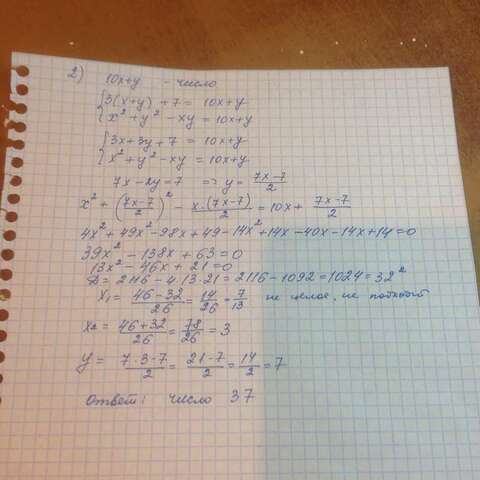 2) 10x+y - число
{3(x+y)+7 = 10x+y
{x²+y²-xy = 10x+y
{3x+3y+7 = 10x+y
{x²+y²-xy = 10x+y
7x-2y=7 => y = (7x-7)/2
x² + ((7x-7)/2)² - x·(7x-7)/2 = 10x + (7x-7)/2
4x²+49x²-98x+49-14x²+14x-40x-14x+14=0
39x²-138x+63=0
13x²-46x+21=0
D=2116-4·13·21=2116-1092=1024=32²
x₁ = (46-32)/26 = 14/26 = 7/13 не целое, не подходит
x₂ = (46+32)/26 = 78/26 = 3
y = (7·3-7)/2 = (21-7)/2 = 14/2 = 7
Ответ: число 37